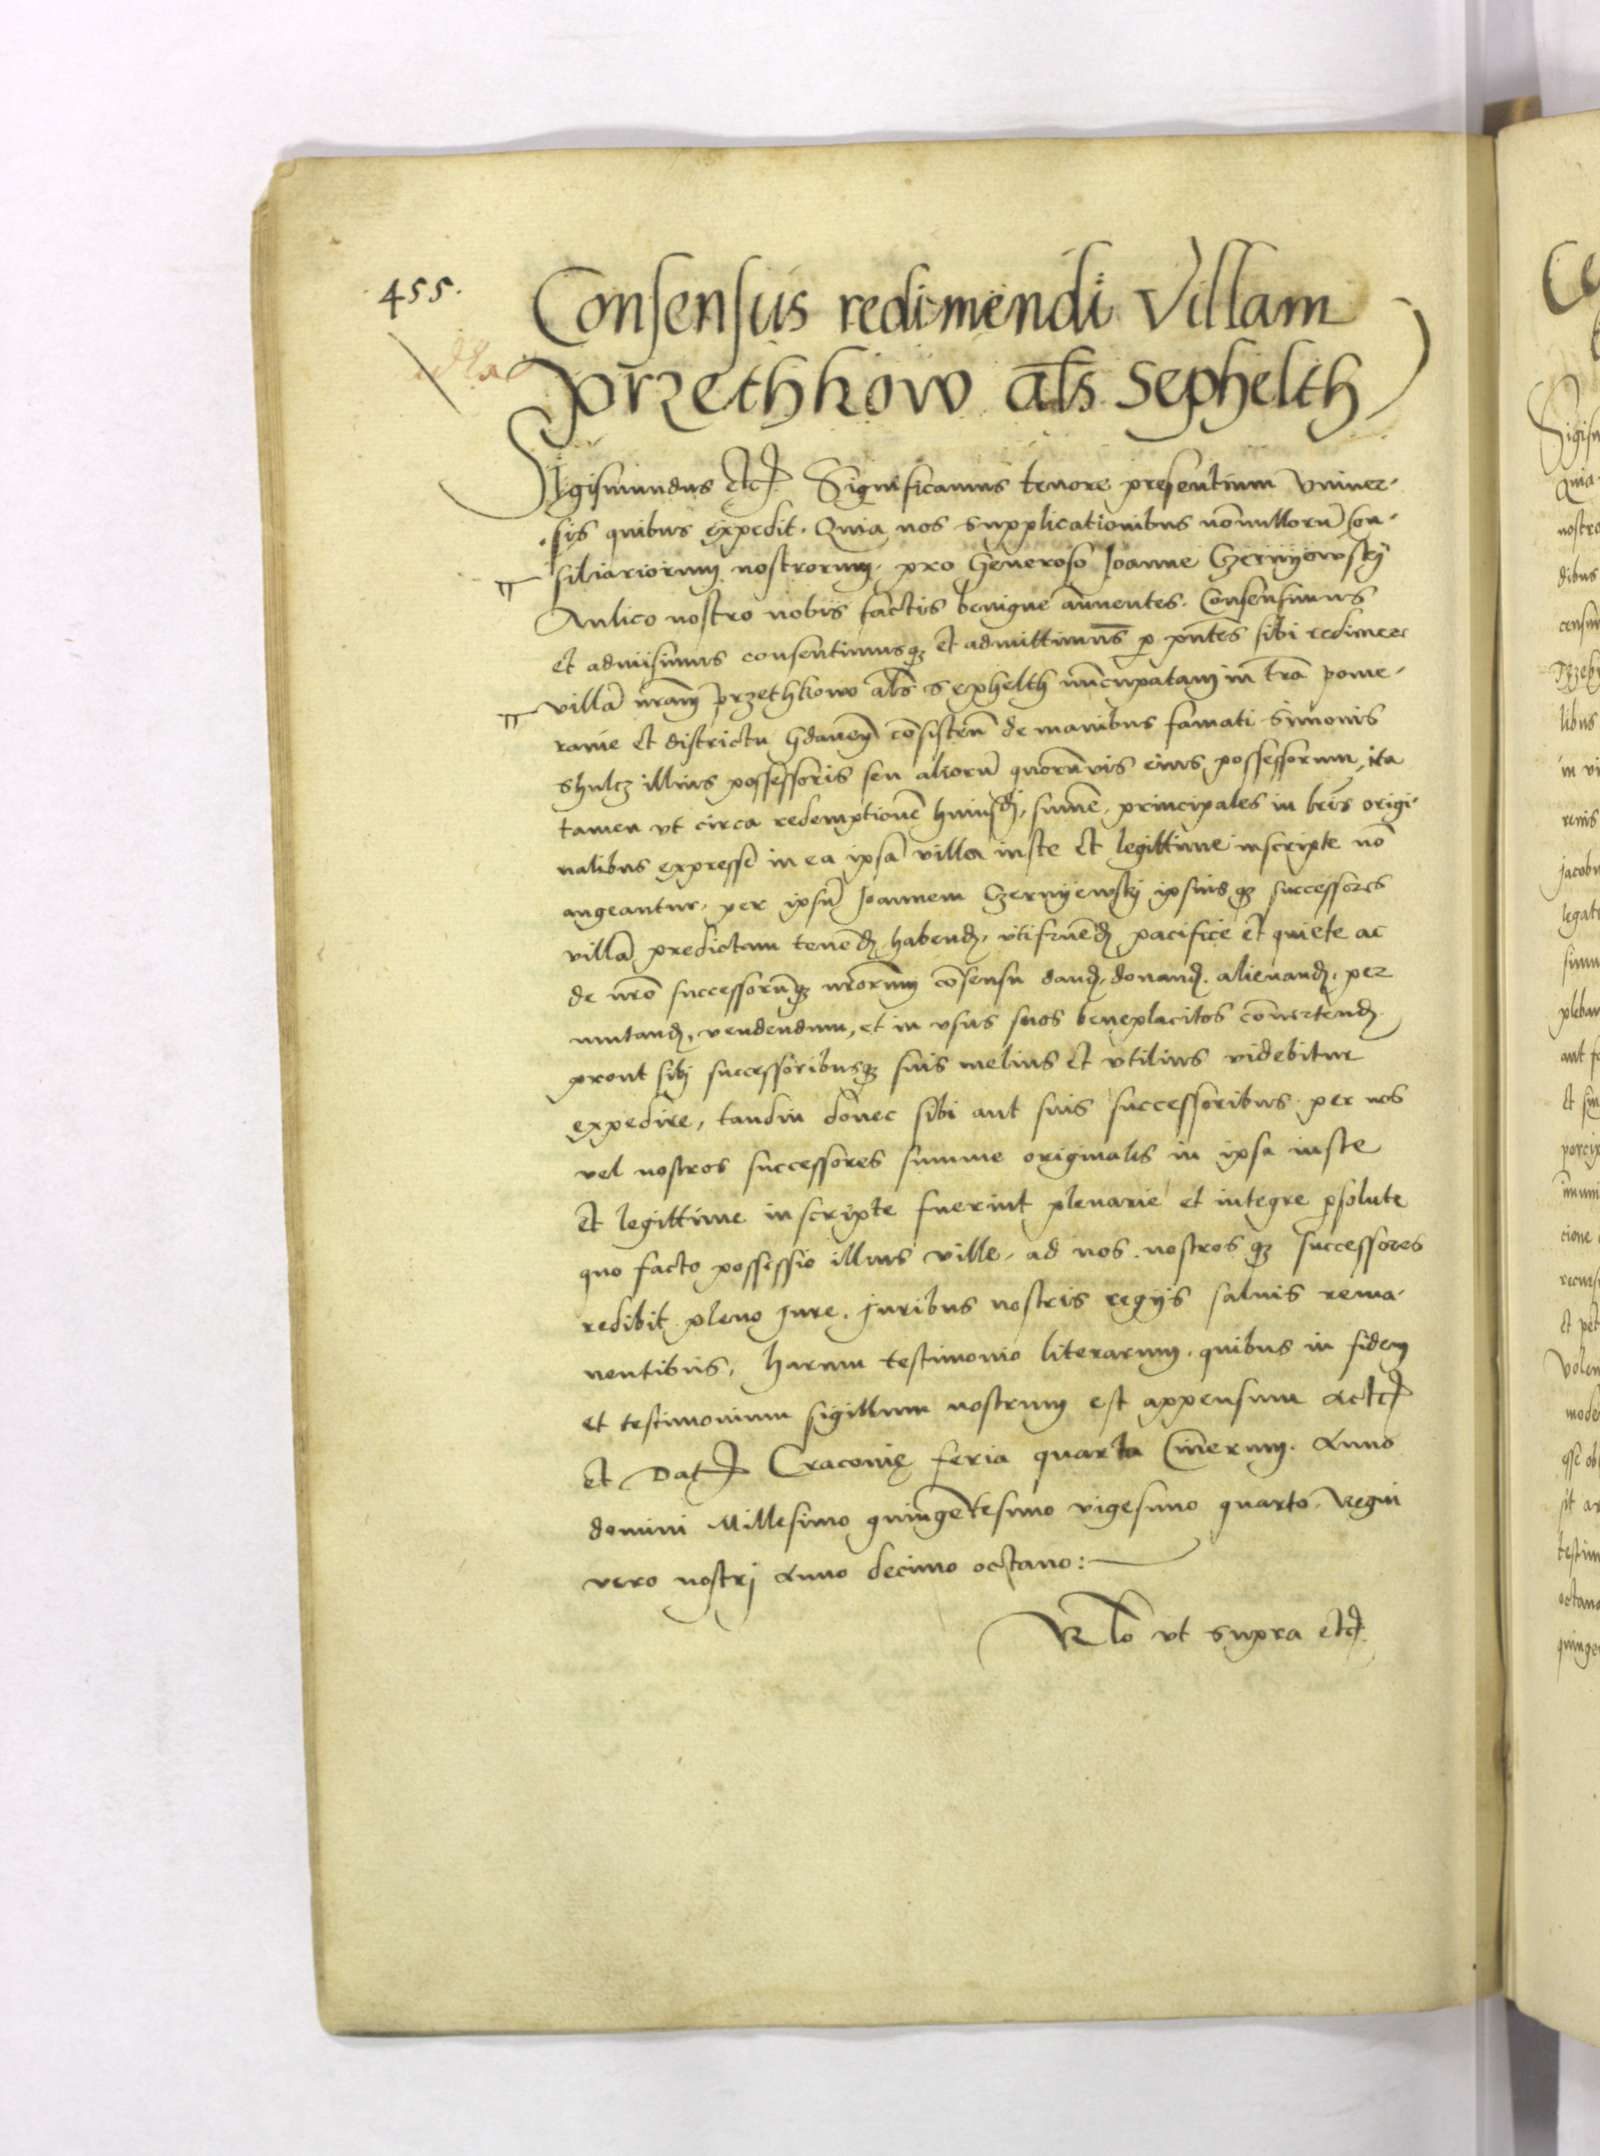 455.
Consensus redimendi Villam
przethkow als sephelth
Sigismundus etc. Significamus tenore presentium Vniuer-
sis quibus expedit. Quia nos supplicationibus nonnulloru con-
siliariorum nostrorum, pro Generoso Joanne Czernyewsky
Aulico nostro nobis factis benigne annentes. Consensimus
et admisimus consentimusque et admittimus p pntes sibi redimere
villa nram przethkow als sephelth nuncupatam in tra pome-
ranie et districtu Gdanen consisten de manibus famati Simonis
shultz illius possessoris seu alioru quorumuis eius possessorum, ita
tamen vt circa redemptione huiusmodi, summe principales in lris origi-
nalibus expresse in ea ipsa villa iuste et legittime inscripte no
augeantur, per ipsu Joannem Czernyewsky ipsiusque successores
villa predictam tenend, habend, vtifruend pacifice et quiete ac
de nro successorumque nrorum consensu dand, donand, alienand, per
mutand, vendendum, et in vsus suos beneplacitos conuertend
prout sibi successoribusque suis melius et vtilius videbitur
expedire, tandiu donec sibi aut suis successoribus per nos
vel nostros successores summe originalis in ipsa iuste
et legittime inscripte fuerint plenarie et integre psolute
quo facto possessio illius ville, ad nos nostrosque successores
redibit pleno jure. juribus nostris regijs saluis rema-
nentibus, harum testimonio literarum, quibus in fidem
et testimonium sigillum nostrum est appensum Act
et Dat Cracouie feria quarta Cinerum. Anno
domini Millesimo quingentesimo vigesimo quarto. Regni
vero nostri Anno decimo octauo:
Rlo vt supra etc.